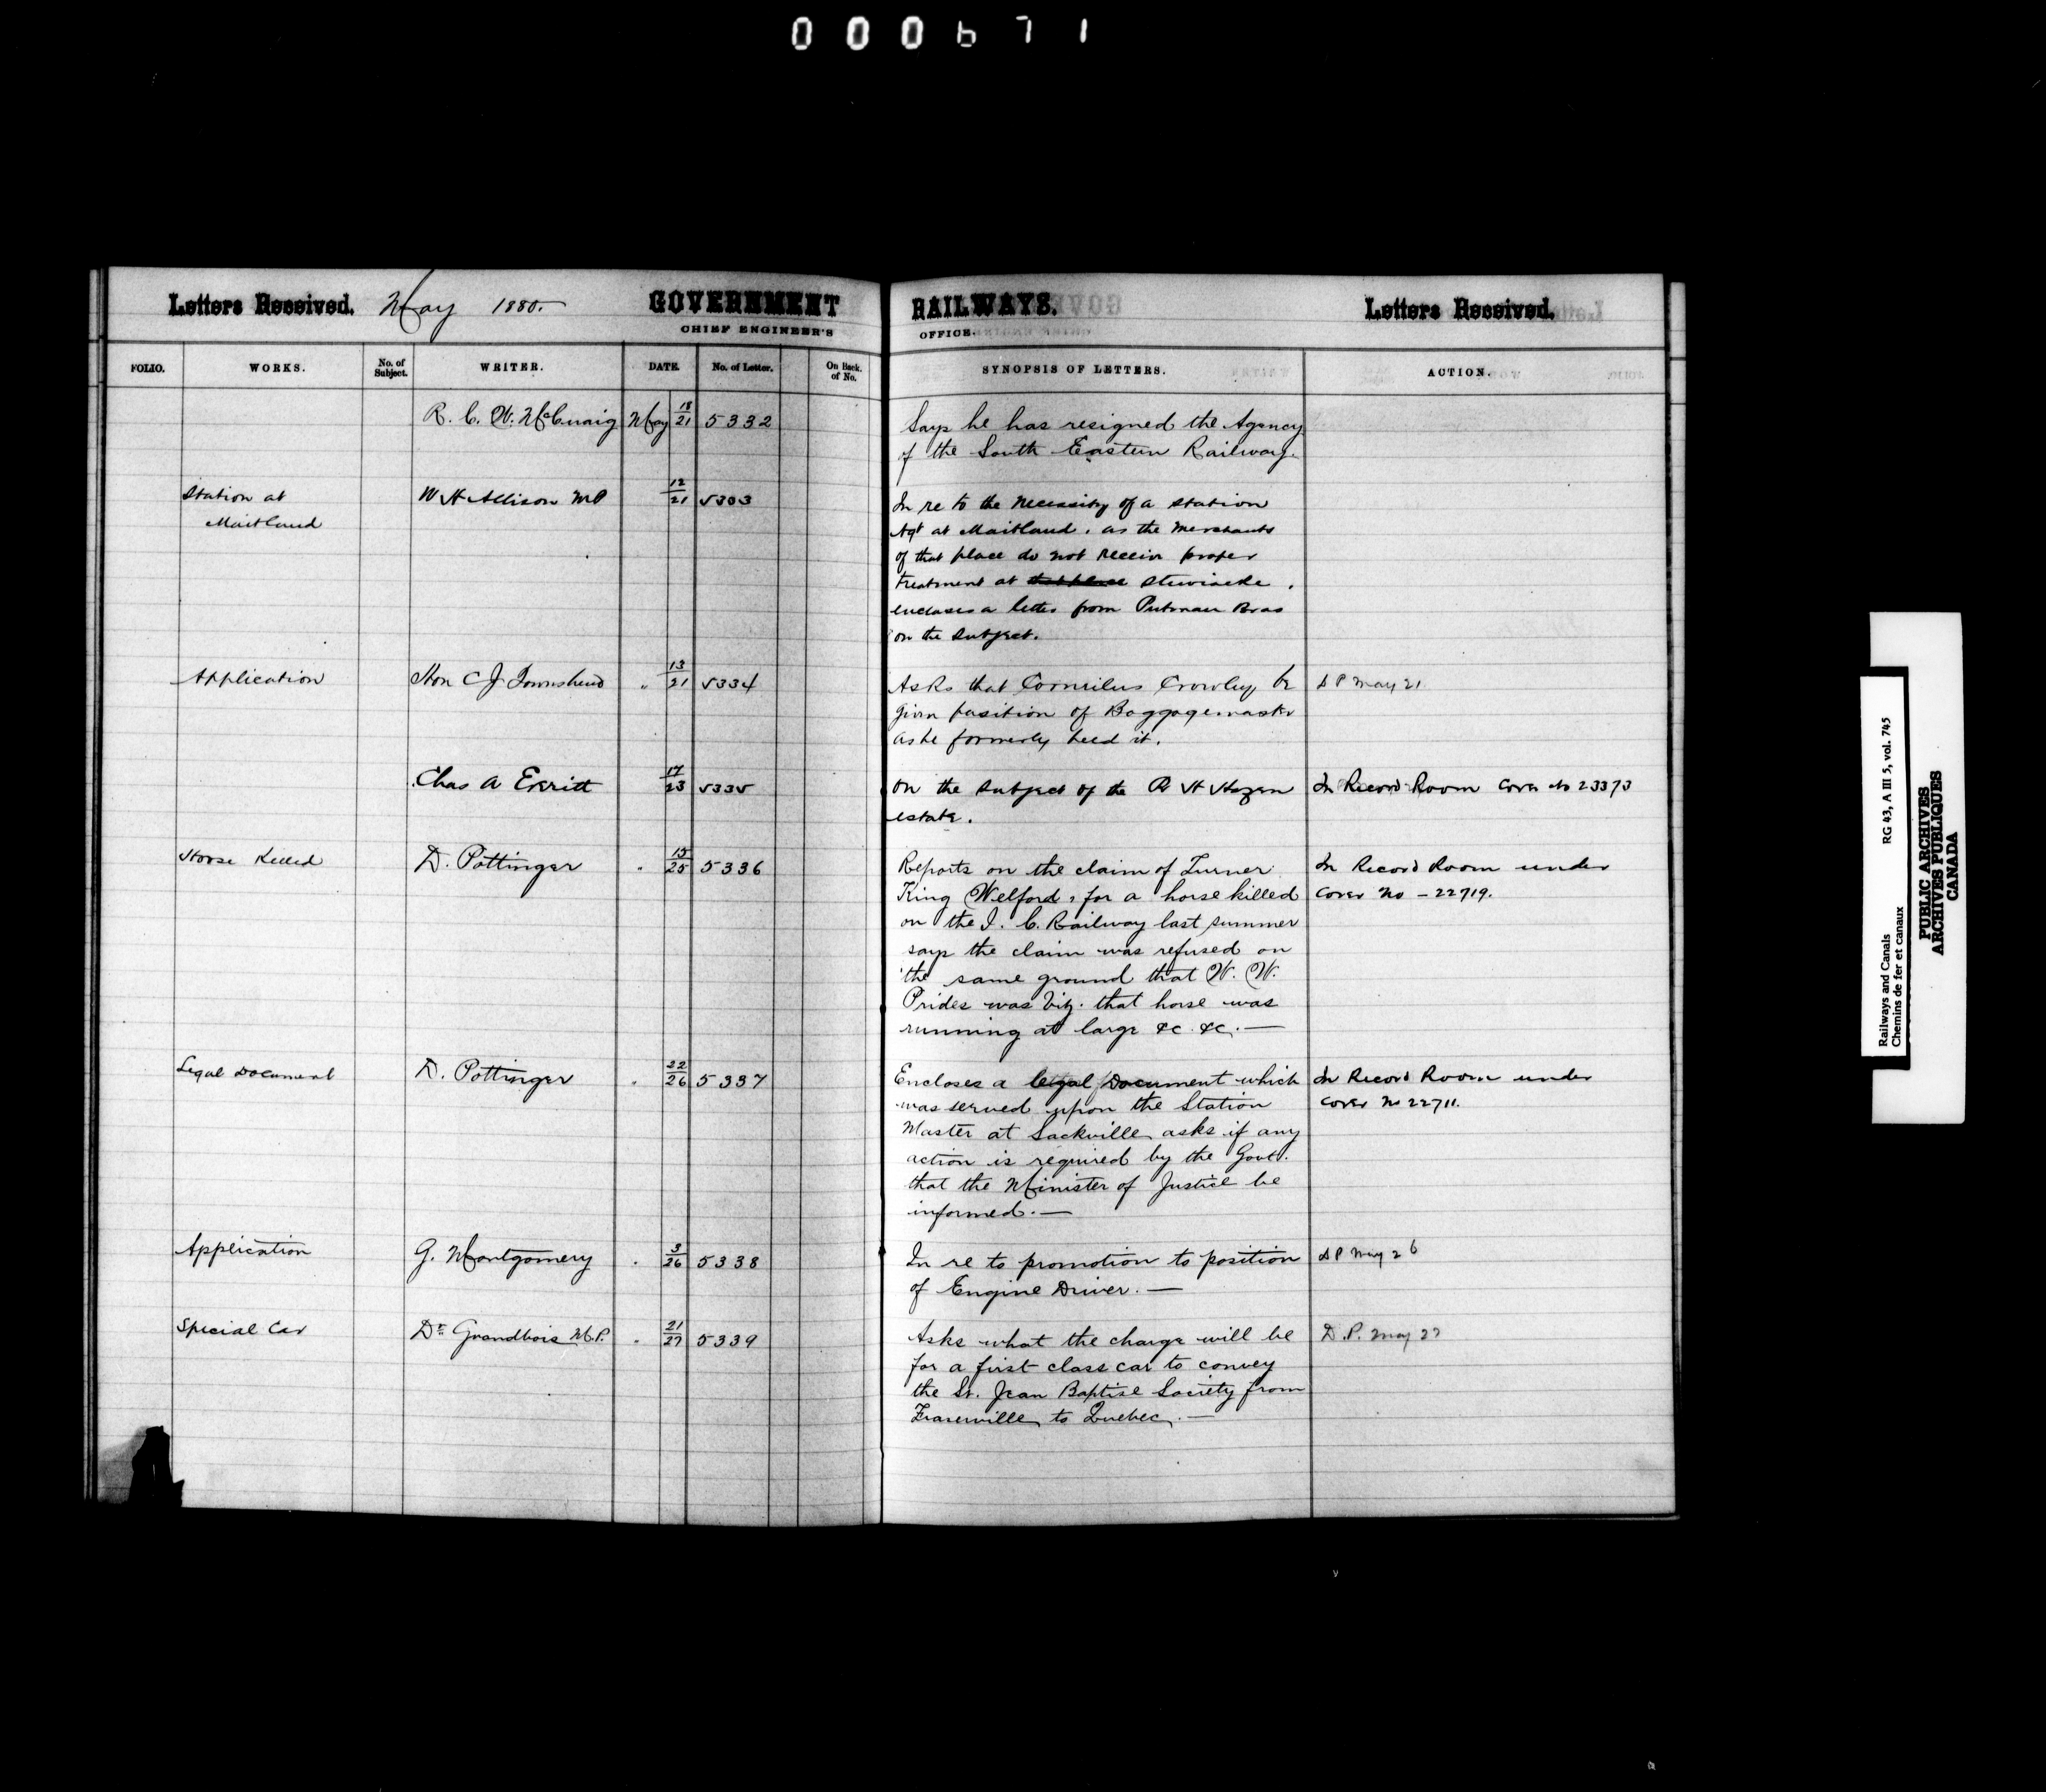 000671
Letters Received. May 1880. GOVERNMENT RAILWAYS. Letters Received.
CHIEF ENGINEER'S OFFICE.
FOLIO. WORKS. No. of Subject. WRITER. DATE. No. of Letter. On Back. of No. SYNOPSIS OF LETTERS. ACTION.
R. C. W. McCuaig May 18/21 5332 Says he has resigned the Agency
of the South Eastern Railway.
Station at W H Allison MP 12/21 5333 In re to the necessity of a station
Maitland Agt at Maitland, as the merchants
of that place do not receive proper
treatment at that place Stewiacke.
encloses a letter from Putnam Bros
on the subject.
Application Hon C J Townshend " 13/21 5334 Asks that Cornelius Crowley be D P May 21
given position of Baggagemaster
as he formerly held it.
Chas A Everitt 17/23 5335 On the subject of the R H Hazen In Record Room Cover No 23373
estate.
Horse Killed D. Pottinger " 15/25 5336 Reports on the claim of Turner In Record Room under
King Welford, for a horse killed cover No - 22719.
on the I. C. Railway last summer
says the claim was refused on
the same ground that W. W.
Prides was Viz. that horse was
running at large &c. &c. —
Legal Document D. Pottinger " 22/26 5337 Encloses a legal Document which In Record Room under
was served upon the Station cover No 22711.
Master at Sackville asks if any
action is required by the Govt.
that the Minister of Justice be
informed. —
Application G. Montgomery " 3/26 5338 In re to promotion to position D P May 26
of Engine Driver. —
Special Car Dr. Grandbois M.P. " 21/27 5339 Asks what the charge will be D.P. May 27
for a first class car to convey
the St. Jean Baptise Society from
Fraserville to Quebec. —
Railways and Canals RG 43, A III 5, vol. 745
Chemins de fer et canaux
PUBLIC ARCHIVES
ARCHIVES PUBLIQUES
CANADA